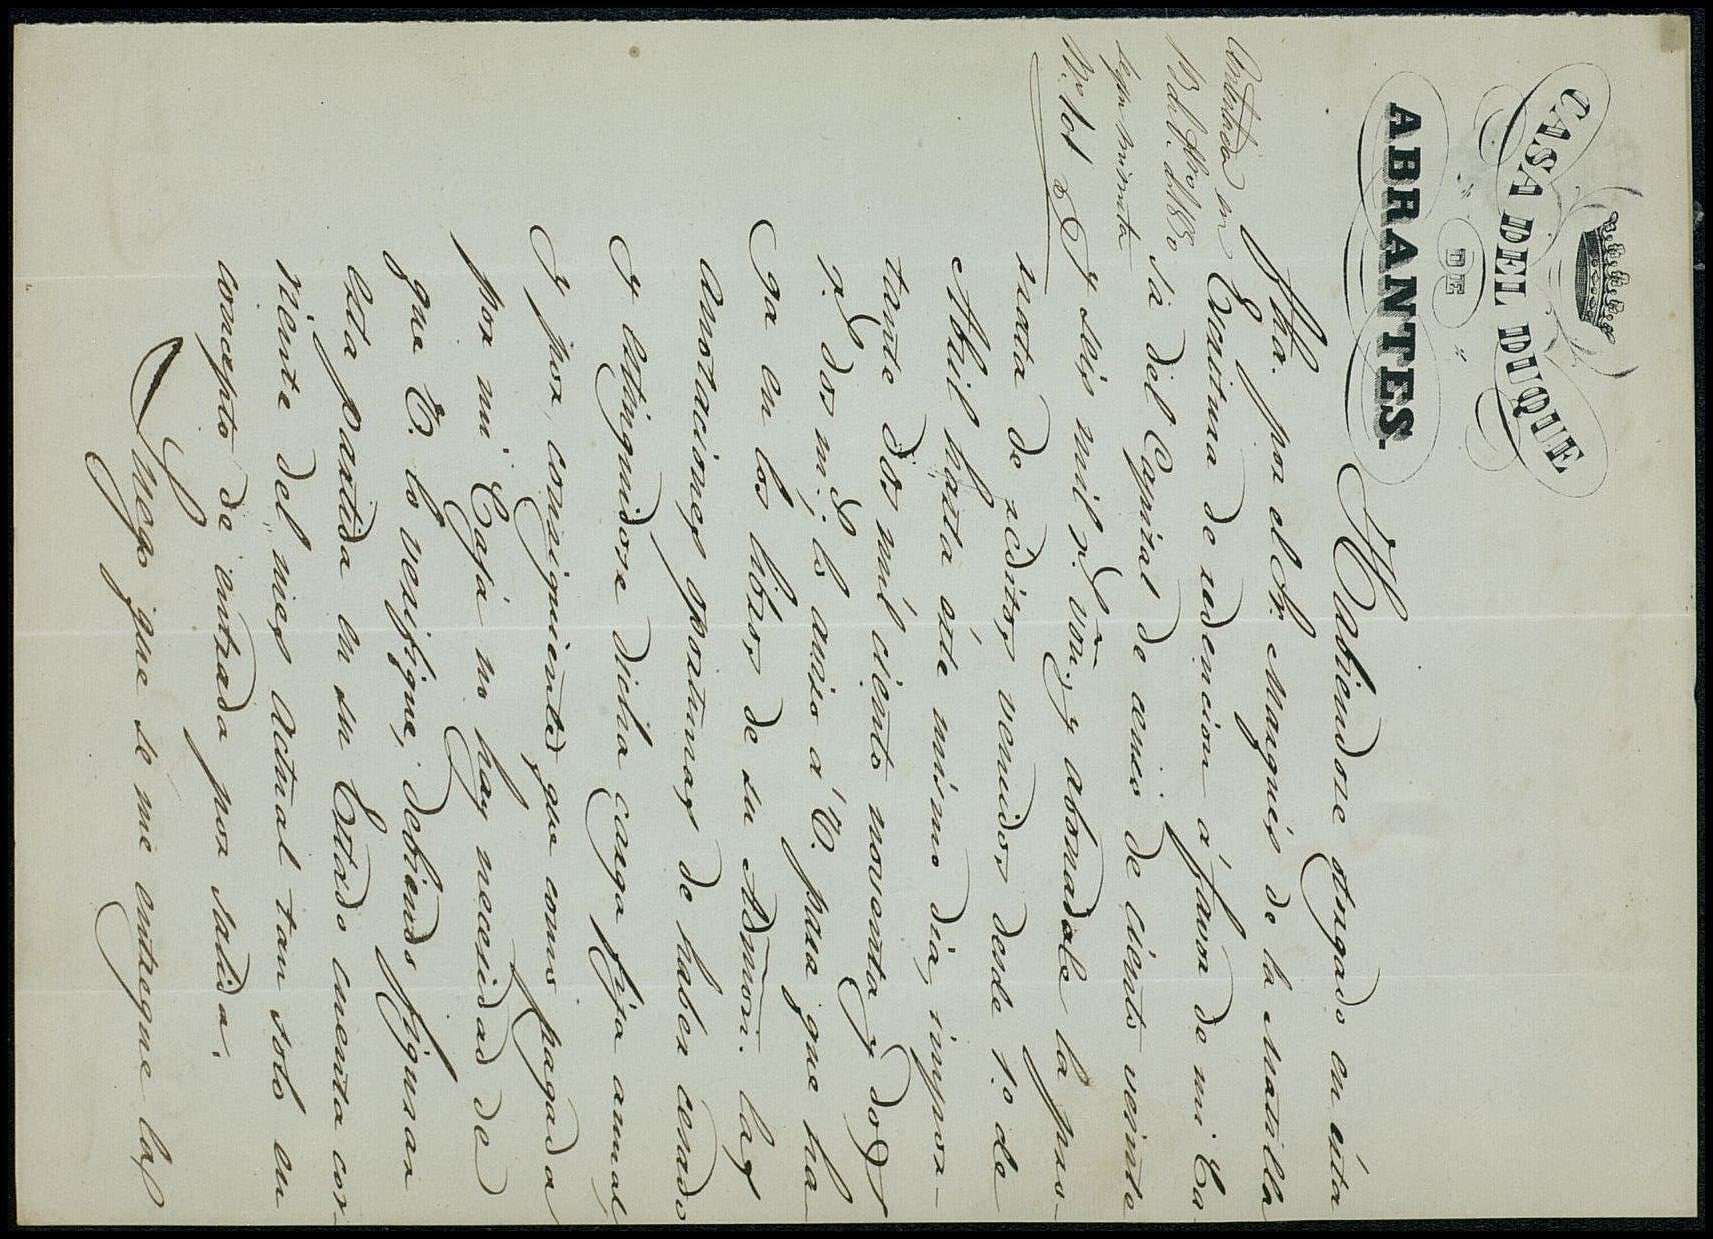 CASA DEL DUQUE
DE
ABRANTES.
Contestada en
13 de
segun minuta
Nº 101
Habiendose otorgado en ésta
fha. por el Sr. Marqués de la Matilla
Escritura de redencion á favor de mi Ca-
sa del Capital de censo de ciento veinte
y seis mil r.s von. y abonadole la pro-
rrata de réditos vencidos desde 1.o de
Abril hasta éste mismo dia, impor-
tante dos mil ciento noventa y dos
r.s dos m.s lo aviso á V. para que ha-
ga en los libros de su Admon. las
anotaciones oportunas de haber cesado
y extinguidose dicha carga fija anual,
y por consiguiente que como pagada
por mi Caja no hay necesidad de
que V. lo verifique, debiendo figurar
esta partida en su Estado cuenta cor-
riente del mes actual tan solo en
concepto de entrada por salida.
Luego que se me entregue las